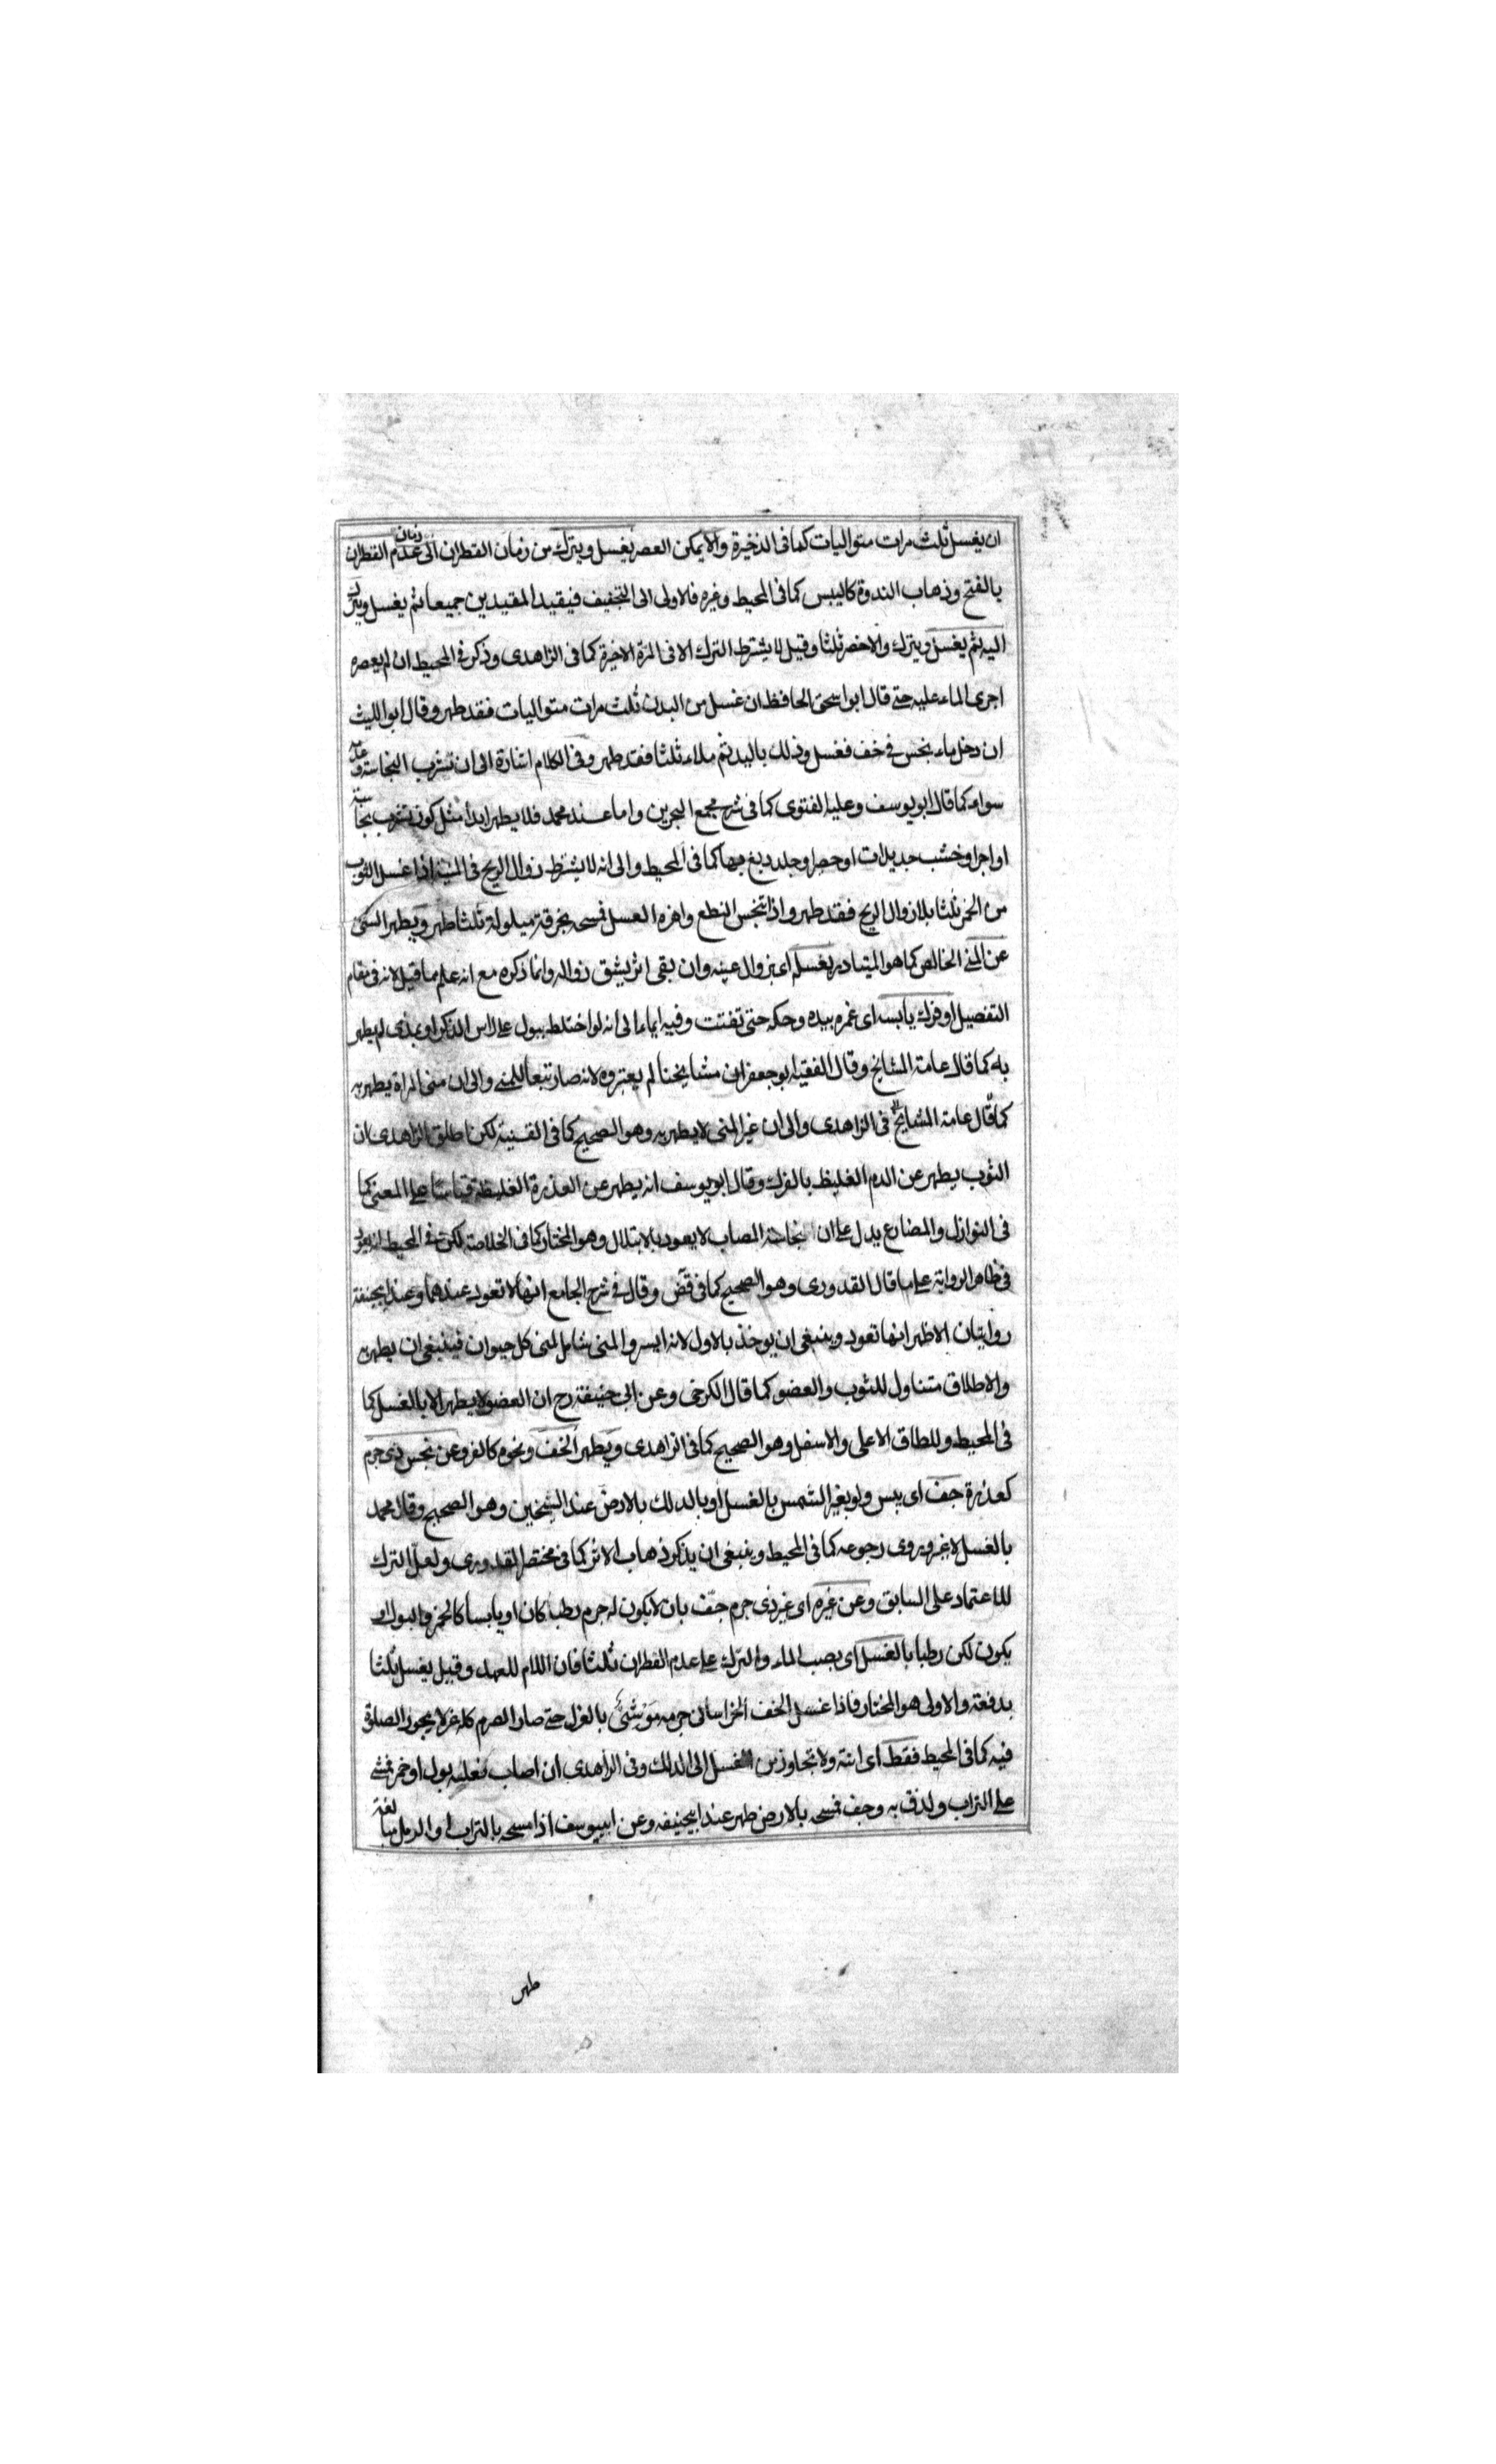 ان يغسل ثلث مرات متواليات كما فى الذخيرة والا يمكن العصر يغسل ويترك من زمان القطران الى زمان عدم القطران
بالفتح وذهاب الندوة كاليبس كما فى المحيط وغيره فلاولى الى التجفيف فيقيد المقيدين جميعا ثم يغسل ويترك
اليه ثم يغسل ويترك والاخصر ثلثا وقيل لا يشترط الترك الا فى المرة الاخيرة كما فى الزاهدى وذكر فى المحيط ان لم يعصره
اجرى الماء عليه حتى قال ابو اسحق الحافظ ان غسل من البدن ثلث مرات متواليات فقد طهر وقال ابو الليث
ان دخل ماء نجس فى خف فغسل وذلك باليد ثم ملاء ثلثا فقد طهر وفى الكلام اشارة الى ان تشرب النجاسة وعدمه
سواء كما قال ابو يوسف وعليه الفتوى كما فى شرح مجمع البحرين واما عند محمد فلا يطهر ابدا مثل كوز تشرب نجاسة
او اجر او خشب جديدات او حصر او جلد دبغ بها كما فى المحيط والى انه لا يشترط زوال الريح فى المنية اذا غسل الثوب
من الخمر ثلثا بلا زوال الريح فقد طهر واذا تنجس النطع واهزه الغسل فمسحه بخرقة مبلولة ثلثا طهر ويطهر الشئ
عن المنى الخالص كما هو المتبادر بغسله اى بزوال عينه وان بقى اثر يشق زواله وانما ذكره مع انه علم مما قيل لانه فى مقام
التفصيل او فرك يابسه اى غمره بيده وحكه حتى تفتت وفيه ايماء الى انه لو اختلط ببول على راس الذكر او بمذى لم يطهر
به كما قال عامة المشايخ وقال الفقيه ابو جعفر ان مشايخنا لم يعتبروه لانه صار تبعا للمنى والى ان منى المراة يطهر به
كما قال عامة المشايخ فى الزاهدى والى ان غير المنى لا يطهر به وهو الصحيح كما فى القنية لكن اطلق الزاهدى ان
الثوب يطهر عن الدم الغليظ بالفرك وقال ابو يوسف انه يطهر عن العذرة الغليظة قياسا على المعنى كما
فى النوازل والمضارع يدل على ان نجاسة المصاب لا يعود بالابتلال وهو المختار كما فى الخلاصة لكن فى المحيط انه يعود
فى ظاهر الرواية على ما قال القدورى وهو الصحيح كما فى قض وقال فى شرح الجامع انها لا تعود عندهما وعند ابيحنيفة
روايتان الاظهر انها تعود وينبغى ان يوخذ بالاول لانه ايسر والمنى شامل لمنى كل حيوان فينبغى ان يطهر به
والاطلاق متناول للثوب والعضو كما قال الكرخى وعن ابى حنيفة رح ان العضو لا يطهر الا بالغسل كما
فى المحيط وللطاق الاعلى والاسفل وهو الصحيح كما فى الزاهدى ويطهر الخف ونحوه كالفرو عن نجس ذى جرم
كعذرة جف اى يبس ولو بغير الشمس بالغسل او بالدلك بالارض عند الشيخين وهو الصحيح وقال محمد
بالغسل لا غير ويروى رجوعه كما فى المحيط وينبغى ان يذكر ذهاب الاثر كما فى مختصر القدورى ولعل الترك
للاعتماد على السابق وعن غيره اى غير ذى جرم جف بان لا يكون له جرم رطبا كان او يابسا كالخمر والبول او
يكون لكن رطبا بالغسل اى بصب الماء والترك على عدم القطران ثلثا فان اللام للعهد وقيل يغسل ثلثا
بدفعة والاولى هو المختار فاذا غسل الخف الخراسانى جرمه موشئ بالغزل حتى صار الصرم كله غزلا يجوز الصلوة
فيه كما فى المحيط فقط اى انته ولا تجاوز من الغسل الى الدلك وفى الزاهدى ان اصاب نعليه بول او خمر فمشى
على التراب ولذق به وجف فمسحه بالارض طهر عند ابيحنيفه وعن ابييوسف اذا مسحه بالتراب او الرمل مبالغة
طهر